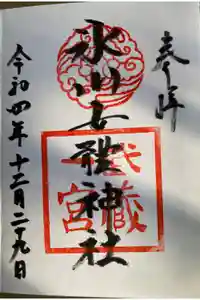 奉拝
氷川女體神社
武蔵
一宮
令和四年十二月二十九日